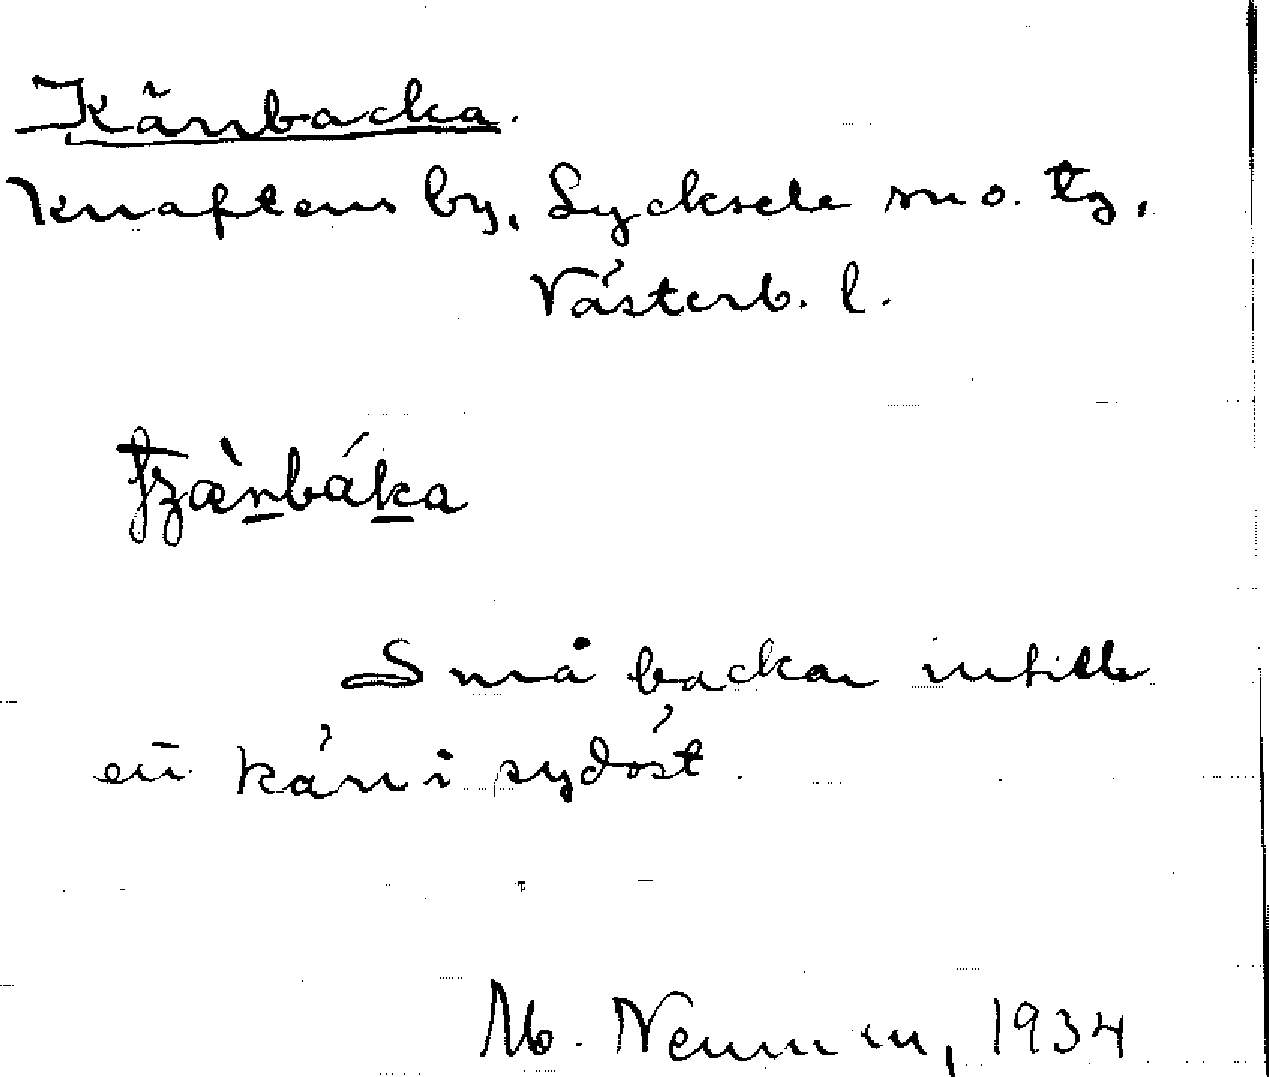 Känbacka.
Knaftens by, Lycksele mo. tg,
Västerb. l.
Små backar intill
en kän i sydöst.
M. Neuman, 1934